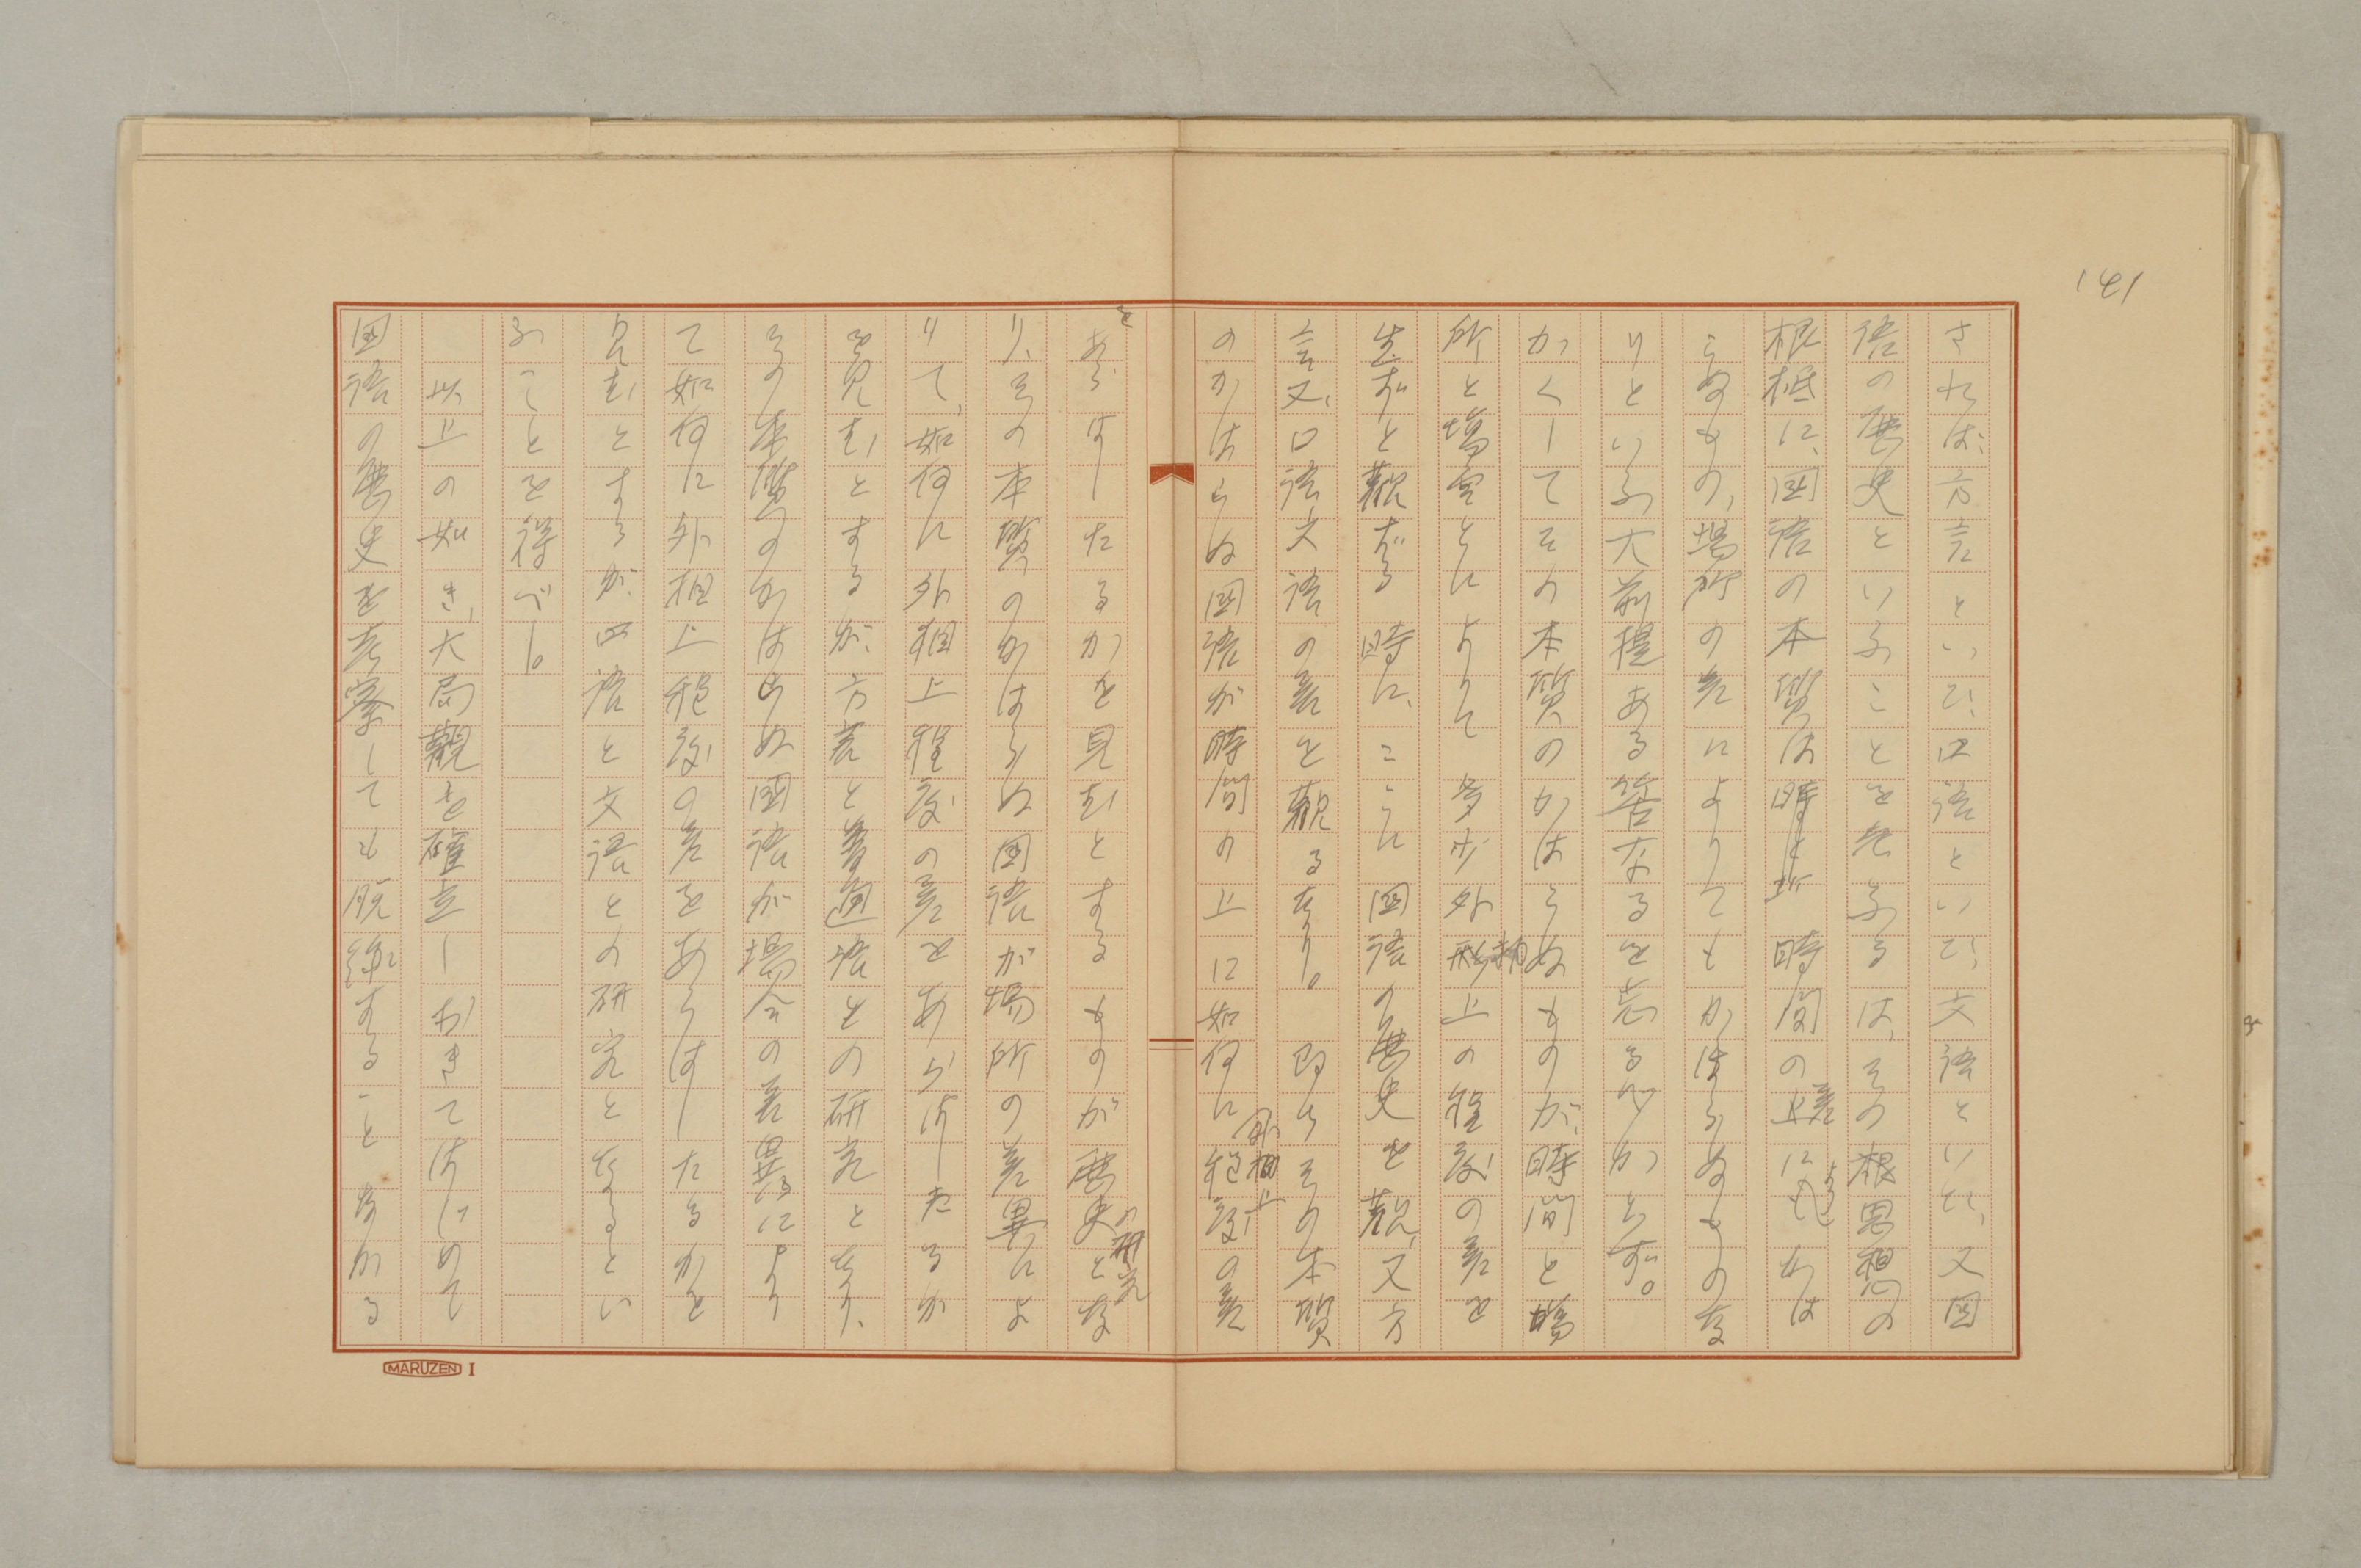 141
されば、方言といひ、口語といひ、文語といひ、又国
語の歴史といふことを考ふるは、その根本思想の
根柢に、国語の本質は時間の上にもかは
らぬもの、場所の差によりてもかはらぬものな
りといふ大前提ある筈なるを忘るべからず。
かくしてその本質のかはらぬものが、時間と場
所と場合とによりて多少外形上の程度の差を
生ずと観ずる時に、ここに国語の歴史を観、又方
言又、口語文語の差を観るなり。即ちその本質
のかはらぬ国語が時間の上に如何に外相上程度の差
をあらはしたるかを見むとするものが歴史の研究とな
り、その本質のかはらぬ国語が場所の差異によ
りて、如何に外相上程度の差をあらはしたるか
を見むとするが、方言と普通語との研究となり、
その本質のかはらぬ国語が場合の差異により
て如何に外相上程度の差をあらはしたるかを
見むとするが口語と文語との研究となるとい
ふことを得べし。
以上の如き、大局観を確立しおきてはじめて
国語の歴史を考察しても脱線することなかる
MARUZEN I